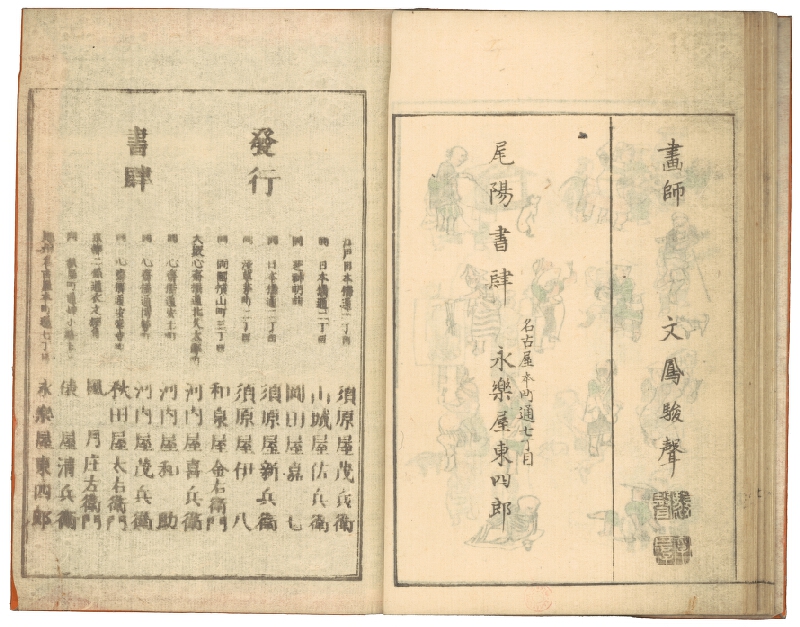 畫師　文鳳駿聲
尾陽書肆
名古屋本町通七丁目
永樂屋東四郎
發行
書肆
江戸日本橋通一丁目　須原屋茂兵衛
同　日本橋通二丁目　山城屋佐兵衛
同　芝神明前　岡田屋嘉七
同　日本橋通二丁目　須原屋新兵衛
同　淺草茅町二丁目　須原屋伊八
同　両國横山町三丁目　和泉屋金右衛門
大阪心齋橋通北久太郎町　河内屋喜兵衛
同　心齋橋通安土町　河内屋和助
同　心齋橋通博労町　河内屋茂兵衛
同　心齋橋通安堂寺町　秋田屋太右衛門
京都二條通衣之棚　風月庄左衛門
同　俵屋清兵衛
尾州名古屋本町通七丁目　永樂屋東四郎